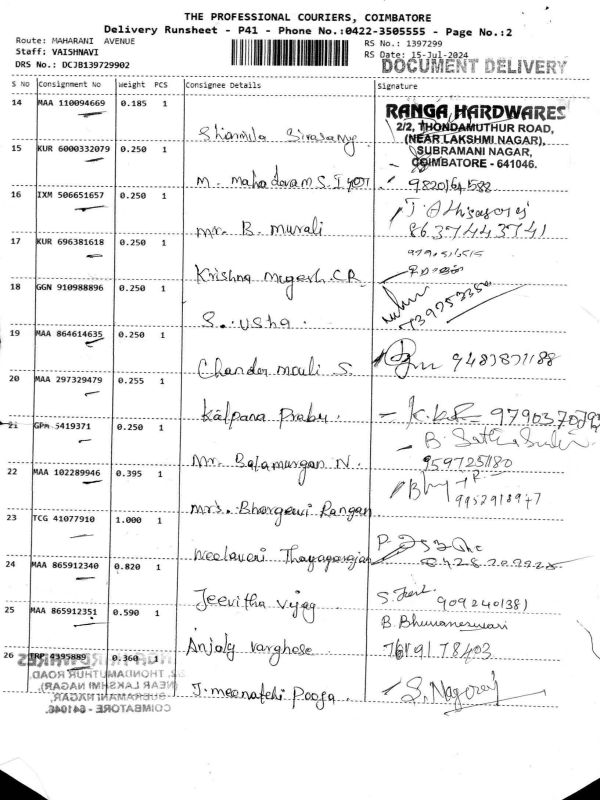 THE PROFESSIONAL COURIERS, COIMBATORE
Delivery Runsheet - P41 - Phone No.:0422-3505555 - Page No.:2
Route: MAHARANI AVENUE
RS No.: 1397299
Staff: VAISHNAVI
RS Date: 15-Jul-2024
DRS No.: DCJB139729902
DOCUMENT DELIVERY
S No Consignment No Weight PCS Consignee Details Signature
14 MAA 110094669 0.185 1
RANGA HARDWARES
2/2, THONDAMUTHUR ROAD,
(NEAR LAKSHMI NAGAR),
SUBRAMANI NAGAR,
COIMBATORE - 641046.
Sharmila
15 KUR 6000332079 0.250 1
M. Mahadevan S.
9820164588
16 IXM 506651657 0.250 1
Mr. B. Murali
8637443741
17 KUR 696381618 0.250 1
Krishna Mugesh C.R
18 GGN 910988896 0.250 1
S. Usha.
19 MAA 864614635 0.250 1
Chander mouli S.
9487871188
20 MAA 297329479 0.255 1
Kalpana Prabu.
21 GPm 5419371 0.250 1
Mr. Balamurgan N.
9597251180
22 MAA 102289946 0.395 1
Mrs. Bhargavi Rangan
9952918947
23 TCG 41077910 1.000 1
24 MAA 865912340 0.820 1
Jeevitha Vijay
9092401381
25 MAA 865912351 0.590 1
B. Bhuvaneswari
Anjaly Varghese
7619178403
26 TRP 4395889 0.360 1
J. meenatchi Pooja.
S. Nagaraj